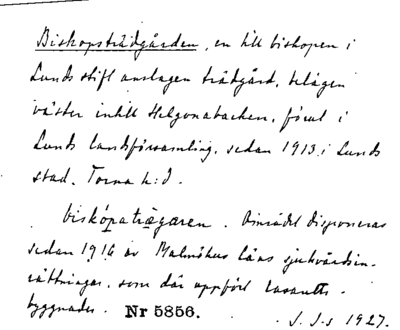 Biskopsträdgården, en till biskopen i
Lunds stift anslagen trädgård, belägen
väster intill Helgonabacken, förut i
Lunds landsförsamling, sedan 1913 i Lunds
stad. Torna h:d.
biskópatrægaren. Området disponeras
sedan 1916 av Malmöhus läns sjukvårdsin-
rättningar, som där uppfört lasaretts-
byggnader. Nr 5856.
J. S-s 1927.